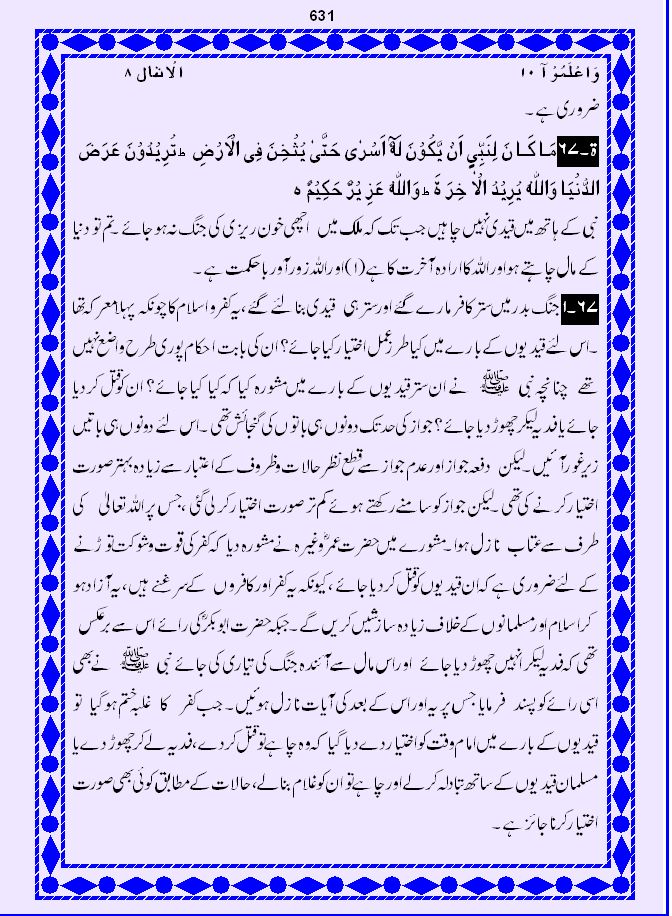 631
وَاعْلَمُوْٓا ۱۰ الْاَنفال ۸
ضروری ہے۔
ۃ۔۶۷ مَا کَانَ لِنَبِیٍّ اَنْ یَّکُوْنَ لَهٗٓ اَسْرٰی حَتّٰی یُثْخِنَ فِی الْاَرْضِ ؕ تُرِیْدُوْنَ عَرَضَ
الدُّنْیَا وَاللّٰهُ یُرِیْدُ الْاٰخِرَۃَ ؕ وَاللّٰهُ عَزِیْزٌ حَکِیْمٌ ہ
نبی کے ہاتھ میں قیدی نہیں چاہیں جب تک کہ ملک میں اچھی خون ریزی کی جنگ نہ ہو جائے۔ تم تو دنیا
کے مال چاہتے ہو اور اللہ کا ارادہ آخرت کا ہے (۱) اور اللہ زور آور با حکمت ہے۔
۶۷۔۱ جنگ بدر میں ستر کافر مارے گئے اور ستر ہی قیدی بنا لئے گئے، یہ کفر و اسلام کا چونکہ پہلا معرکہ تھا
۔اس لئے قیدیوں کے بارے میں کیا طرز عمل اختیار کیا جائے؟ ان کی بابت احکام پوری طرح واضع نہیں
تھے چنانچہ نبی ﷺ نے ان ستر قیدیوں کے بارے میں مشورہ کیا کہ کیا کیا جائے؟ ان کو قتل کر دیا
جائے یا فدیہ لیکر چھوڑ دیا جائے؟ جواز کی حد تک دونوں ہی باتوں کی گنجائش تھی۔ اس لئے دونوں ہی باتیں
زیر غور آئیں۔ لیکن دفعہ جواز اور عدم جواز سے قطع نظر حالات و ظروف کے اعتبار سے زیادہ بہتر صورت
اختیار کرنے کی تھی۔ لیکن جواز کو سامنے رکھتے ہوئے کم تر صورت اختیار کر لی گئی، جس پر اللہ تعالیٰ کی
طرف سے عتاب نازل ہوا۔ مشورے میں حضرت عمرؓ وغیرہ نے مشورہ دیا کہ کفر کی قوت و شوکت توڑنے
کے لئے ضروری ہے کہ ان قیدیوں کو قتل کر دیا جائے، کیونکہ یہ کفر اور کافروں کے سرغنے ہیں، یہ آزاد ہو
کر اسلام اور مسلمانوں کے خلاف زیادہ سازشیں کریں گے۔ جبکہ حضرت ابوبکرؓ کی رائے اس سے برعکس
تھی کہ فدیہ لیکر انہیں چھوڑ دیا جائے اور اس مال سے آئندہ جنگ کی تیاری کی جائے نبی ﷺ نے بھی
اسی رائے کو پسند فرمایا جس پر یہ اور اس کے بعد کی آیات نازل ہوئیں۔ جب کفر کا غلبہ ختم ہو گیا تو
قیدیوں کے بارے میں امام وقت کو اختیار دے دیا گیا کہ وہ چاہے تو قتل کر دے، فدیہ لے کر چھوڑ دے یا
مسلمان قیدیوں کے ساتھ تبادلہ کر لے اور چاہے تو ان کو غلام بنا لے، حالات کے مطابق کوئی بھی صورت
اختیار کرنا جائز ہے۔